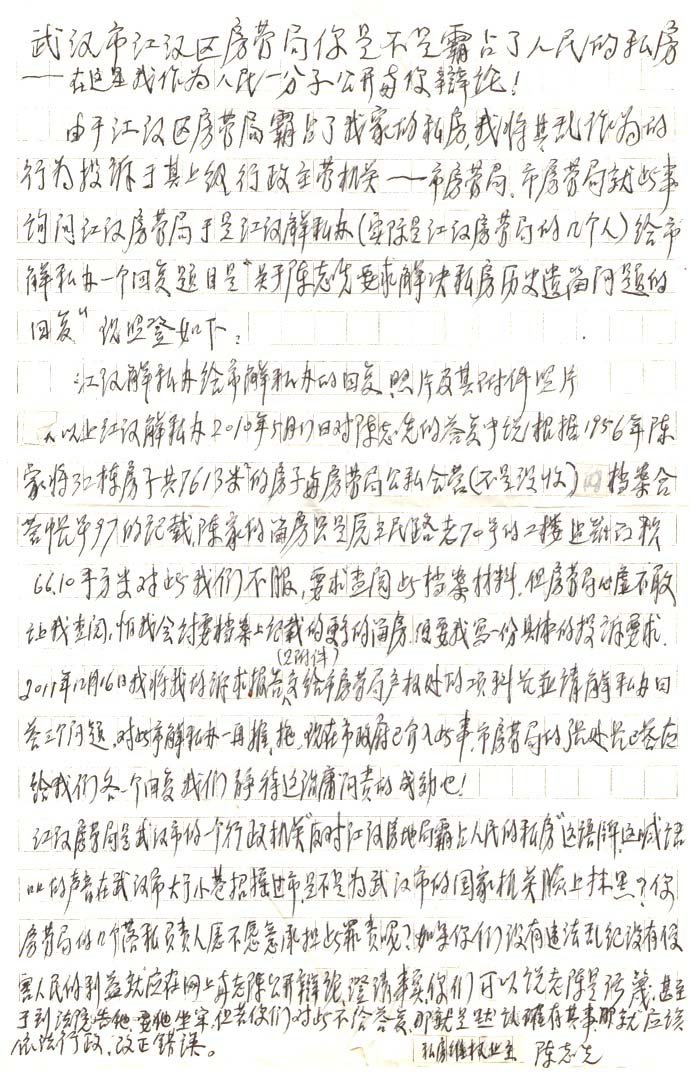 武汉市江汉区房管局你是不是霸占了人民的私房
——在这里我作为人民一分子公开与你辩论!
由于江汉区房管局霸占了我家的私房,我将其乱作为的
行为投诉于其上级行政主管机关——市房管局,市房管局就此事
询问江汉房管局于是江汉解私办(实际是江汉房管局的几个人)给市
解私办一个回复题目是“关于陈志先要求解决私房历史遗留问题的
回复”现照登如下:
江汉解私办给市解私办的回复照片及其附件照片
以上江汉解私办2010年5月17日对陈志先的答复中说“根据1956年陈
家将32栋房子共7613米²的房子与房管局公私合营(不是没收)的档案合
营帐单97的记载,陈家的留房只是民主民路老70号的二楼
66.10平方米对此我们不服,要求查阅此档案材料,但房管局心虚不敢
让我查阅,怕我会讨要档案上记载的更多的留房,但要我写一份具体的投诉要求。
(2附件)
2011年12月16日我将我的诉求报告交给市房管局产权处的项科长并请解私办回
答三个问题,对此市解私办一再推拖,现在市政府已介入此事,市房管局的张处长已答应
给我们各一个回复我们静待这治庸问责的成功吧!
江汉房管局是武汉市的一个行政机关“反对江汉房地局霸占人民的私房”这语牌,这喊话
的声音在武汉市大于小巷招摇过市,是不是为武汉市的国家机关脸上抹黑?你
房管局的几个落私负责人愿不愿意承担此罪责呢?如果你们没有违法乱纪没有侵
害人民的利益就应在网上与老陈公开辩论,澄清事实,你们可以说老陈是污蔑,甚至
于到法院告他,要他坐牢,但若你们对此不给答复,那就是默认确有其事,那就应该
依法行政,改正错误。
私房维权业主 陈志先